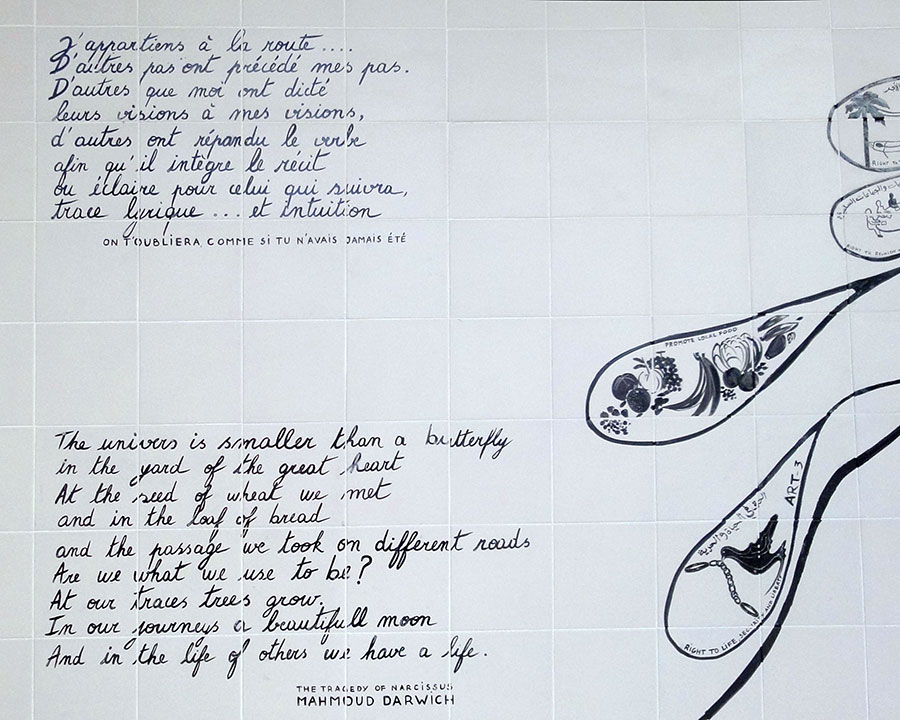 J'appartiens à la route....
D'autres pas ont précédé mes pas.
D'autres que moi ont dicté
leurs visions à mes visions,
d'autres ont répandu le verbe
afin qu'il intègre le récit
ou éclaire pour celui qui suivra,
trace lyrique ... et intuition
ON T'OUBLIERA COMME SI TU N'AVAIS JAMAIS ÉTÉ
RIGHT TO
PROMOTE LOCAL FOOD
The univers is smaller than a butterfly
in the yard of the great heart
At the seed of wheat we met
and in the loaf of bread
and the passage we took on different roads
Are we what we use to be?
At our traces trees grow.
In our journeys a beautifull moon
And in the life of others we have a life.
THE TRAGEDY OF NARCISSUS
MAHMOUD DARWICH
ART_3
RIGHT TO LIFE SECURITY AND LIBERTY